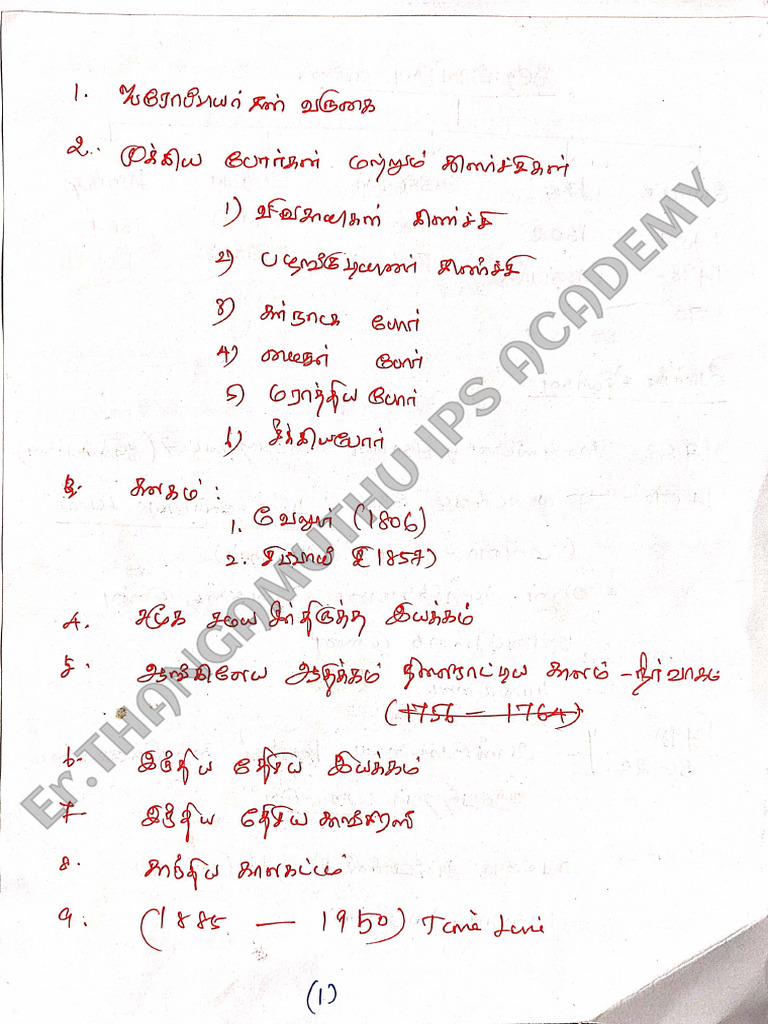 1. ஐரோப்பியர்கள் வருகை
2. முக்கிய போர்கள் மற்றும் கிளர்ச்சிகள்
1) விவசாயிகள் கிளர்ச்சி
2) பழங்குடியினர் கிளர்ச்சி
3) கர்நாடக போர்
4) மைசூர் போர்
5) மராத்திய போர்
6) சீக்கியபோர்
3. கலகம் :
1. வேலூர் (1806)
2. சிப்பாய் (1857)
4. சமூக சமய சீர்திருத்த இயக்கம்
5. ஆங்கிலேய ஆதிக்கம் நிலைநாட்டிய காலம் - நிர்வாகம்
(1756 - 1764)
6. இந்திய தேசிய இயக்கம்
7. இந்திய தேசிய காங்கிரஸ்
8. காந்திய காலகட்டம்
9. (1885 — 1950) Time Line
(1)
Er.THANGAMUTHU IPS ACADEMY